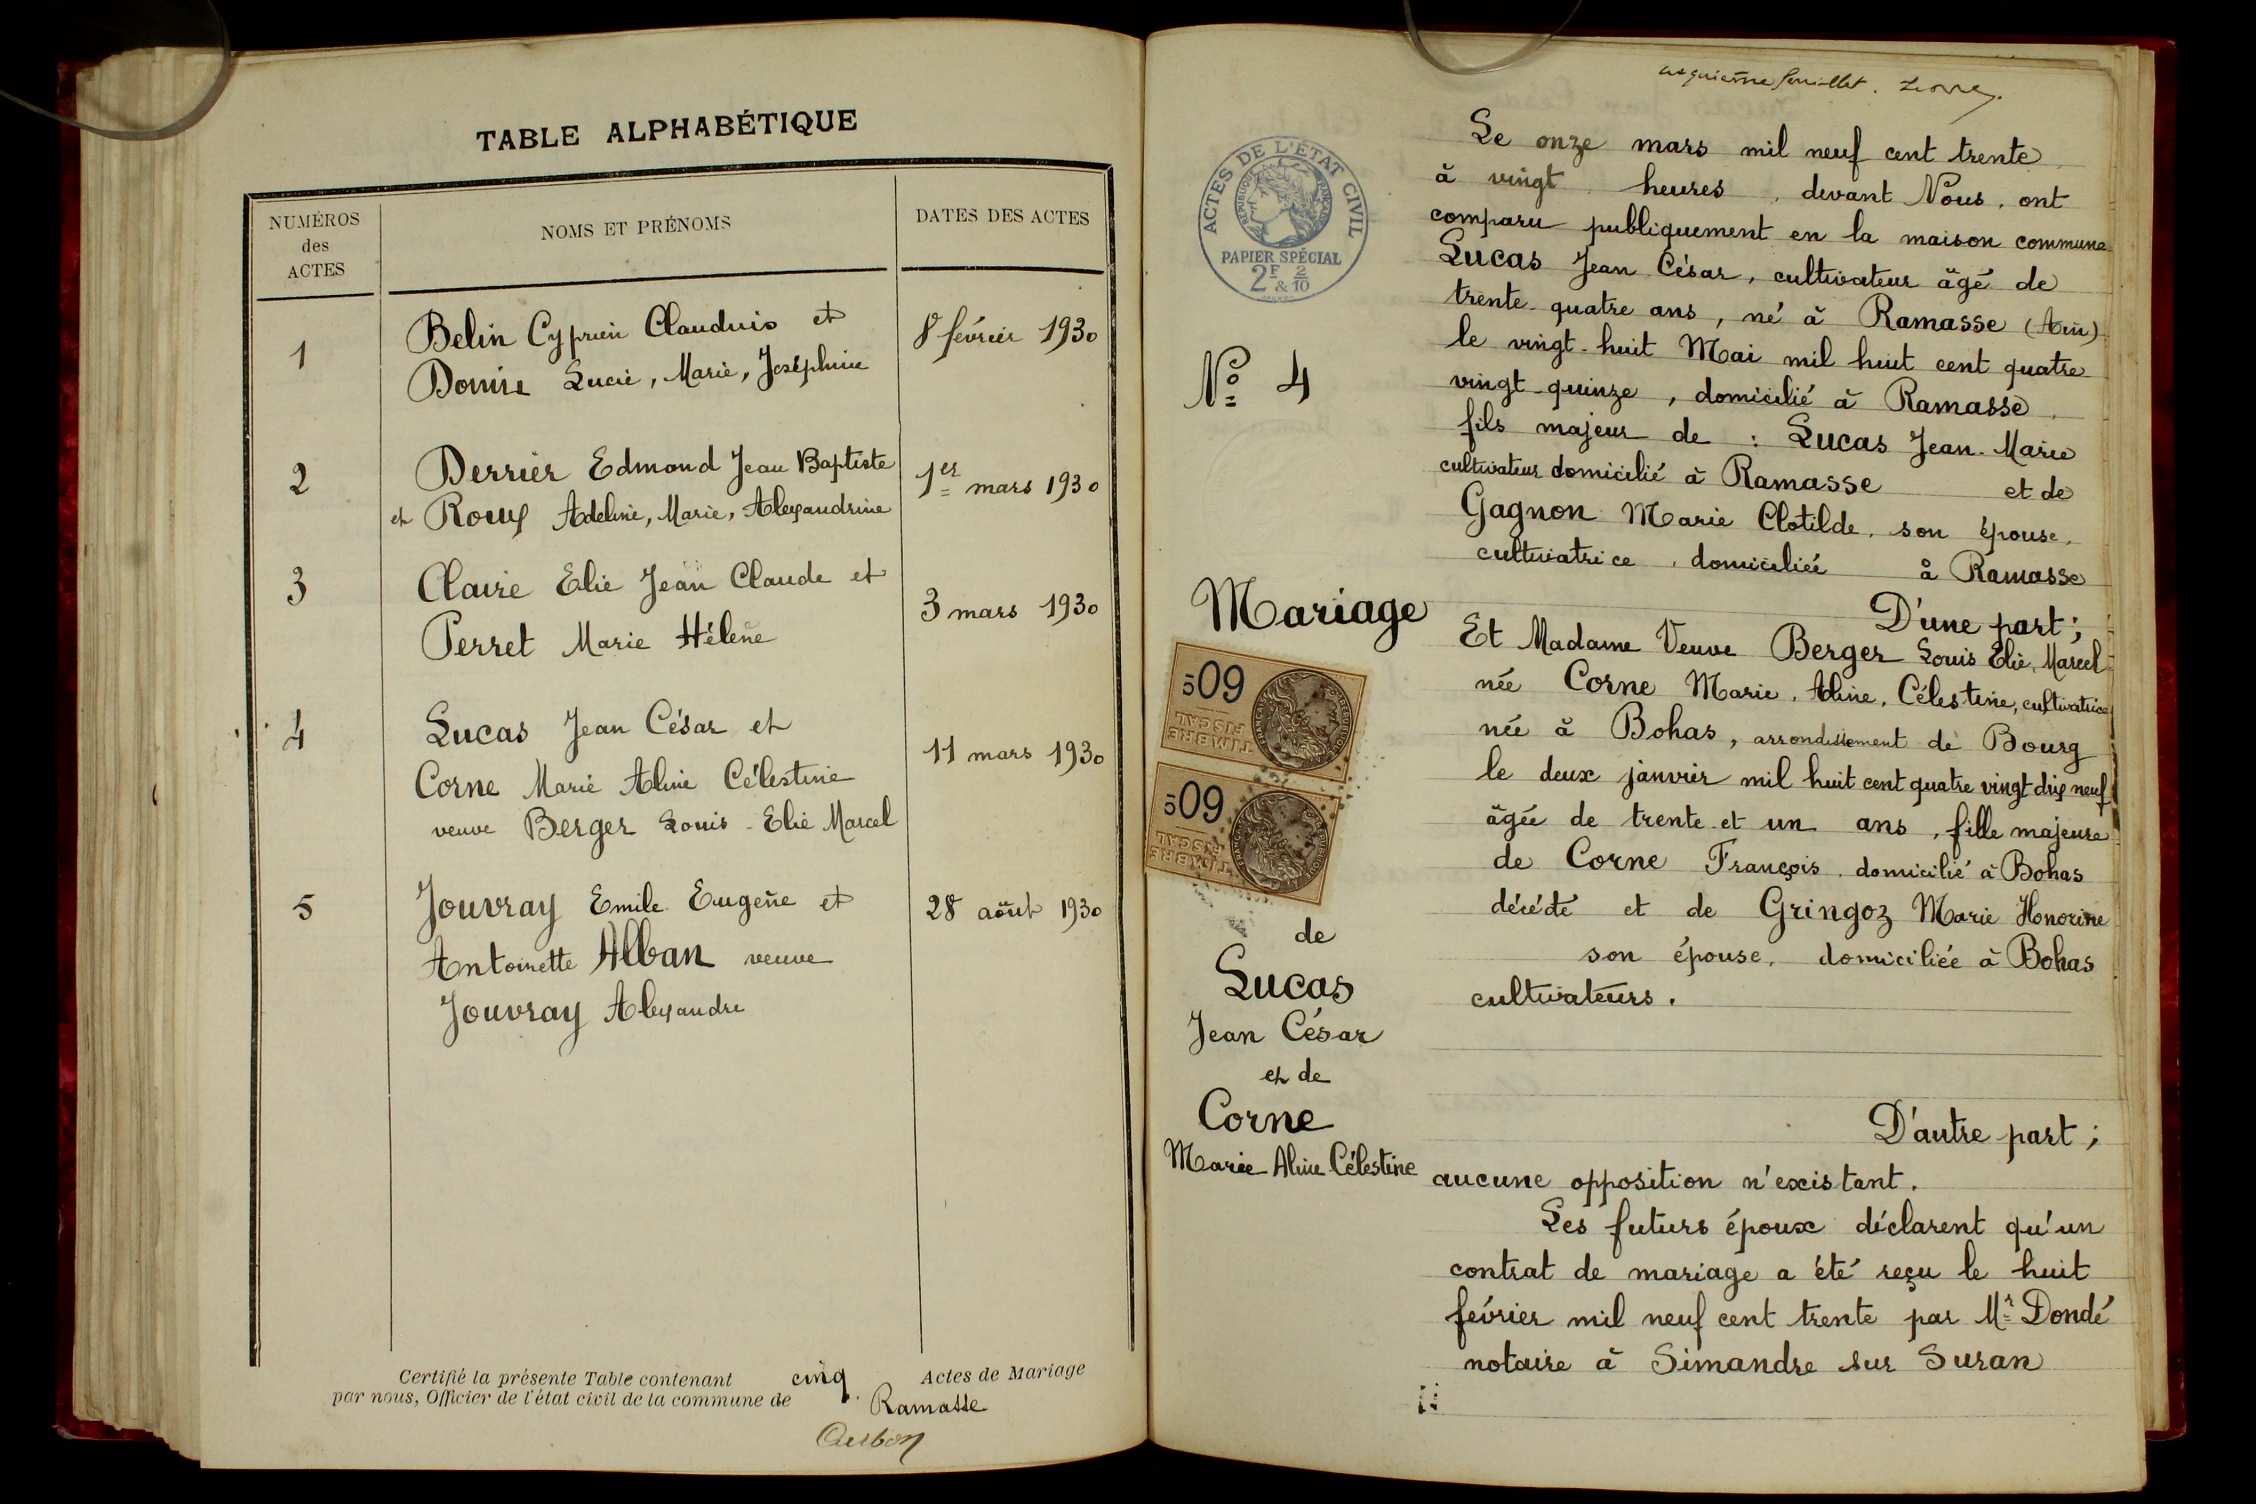 TABLE ALPHABÉTIQUE
NUMÉROS
des
ACTES
NOMS ET PRÉNOMS
DATES DES ACTES
1
Belin Cyprien Claudius et
8 février 1930
Lucie, Marie, Joséphine
2
Derrier Edmond Jean Baptiste
1er mars 1930
et Roux Adeline, Marie, Alexandrine
3
Claire Elie Jean Claude et
3 mars 1930
Perret Marie Hélène
4
Lucas Jean César et
11 mars 1930
Corne Marie Aline Célestine
veuve Berger Louis-Elie Marcel
5
Jouvray Emile Eugène et
28 août 1930
Antoinette Alban veuve
Jouvray Alexandre
Certifié la présente Table contenant cinq Actes de Mariage
par nous, Officier de l'état civil de la commune de Ramasse
feuillet.
ACTES DE L'ÉTAT CIVIL
PAPIER SPÉCIAL
2F & 2/10
No 4
Mariage
5 09
TIMBRE
FISCAL
5 09
TIMBRE
FISCAL
de
Lucas
Jean César
et de
Corne
Marie Aline Célestine
Le onze mars mil neuf cent trente
à vingt heures, devant Nous, ont
comparu publiquement en la maison commune
Lucas Jean César, cultivateur âgé de
trente-quatre ans, né à Ramasse (Ain)
le vingt-huit Mai mil huit cent quatre
vingt-quinze, domicilié à Ramasse,
fils majeur de : Lucas Jean-Marie
cultivateur domicilié à Ramasse et de
Gagnon Marie Clotilde, son épouse,
cultivatrice, domiciliée à Ramasse
D'une part ;
Et Madame Veuve Berger Louis Elie, Marcel
née Corne Marie, Aline, Célestine, cultivatrice
née à Bohas, arrondissement de Bourg
le deux janvier mil huit cent quatre vingt dix neuf
âgée de trente et un ans, fille majeure
de Corne François, domicilié à Bohas
décédé et de Gringoz Marie Honorine
son épouse, domiciliée à Bohas
cultivateurs.
D'autre part ;
aucune opposition n'existant.
Les futurs époux déclarent qu'un
contrat de mariage a été reçu le huit
février mil neuf cent trente par Mr Dondé
notaire à Simandre sur Suran